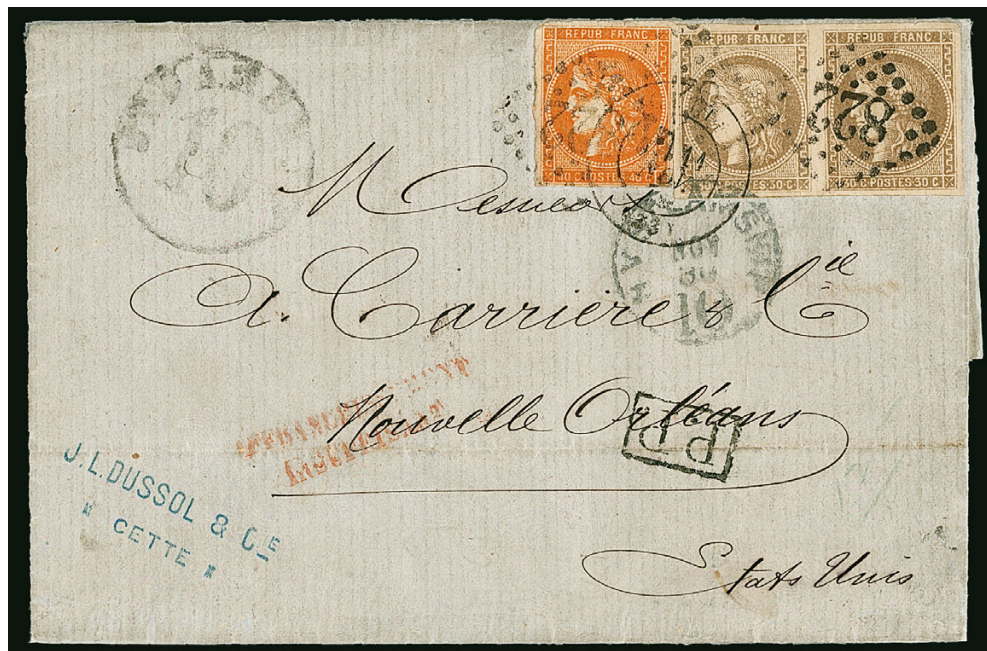 REPUB·FRANC
40 C·POSTES·40 C
REPUB·FRANC
30 C
REPUB·FRANC
30 C·POSTES·30 C
822
Messieurs
A. Carrière & Cie
Nouvelle Orléans
Etats Unis
NOV
30
10
AFFRANCHISSEMENT
INSUFFISANT
P.D.
J.L.DUSSOL & CIE
* CETTE *